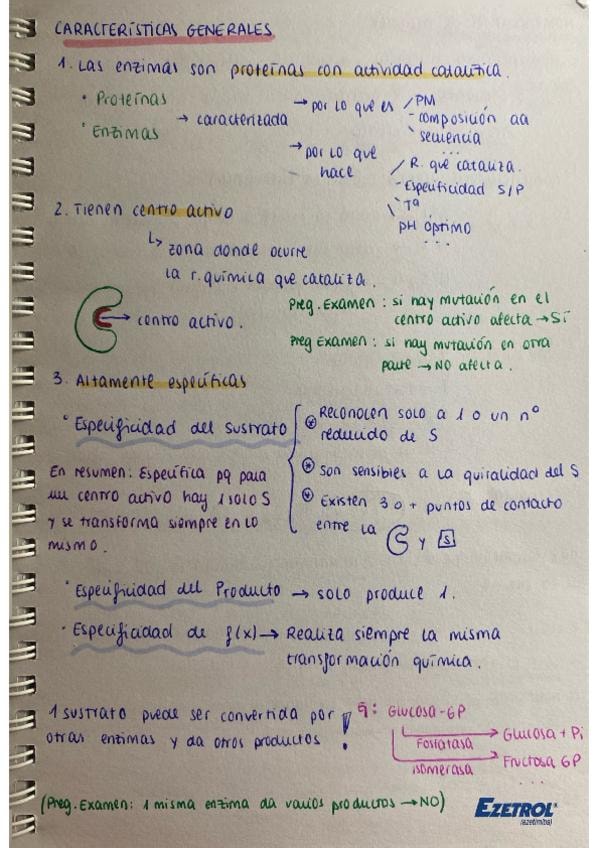 CARACTERÍSTICAS GENERALES
1. Las enzimas son proteínas con actividad catalítica.
• Proteínas
• Enzimas
→ caracterizada
→ por lo que es
PM
composición aa
secuencia
...
→ por lo que
hace
R. que cataliza.
Especificidad S/P
Tª
pH óptimo
...
2. Tienen centro activo
↳ zona donde ocurre
la r. química que cataliza.
→ centro activo.
Preg. Examen: si hay mutación en el
centro activo afecta → SÍ
Preg Examen: si hay mutación en otra
parte → NO afecta.
3. Altamente específicas
• Especificidad del sustrato
Reconocen solo a 1 o un nº
reducido de S
Son sensibles a la quiralidad del S
Existen 3 o + puntos de contacto
entre la y S
En resumen: Específica pq para
un centro activo hay 1 solo S
y se transforma siempre en lo
mismo.
• Especificidad del Producto → solo produce 1.
• Especificidad de f(x) → Realiza siempre la misma
transformación química.
1 sustrato puede ser convertida por
otras enzimas y da otros productos !
Glucosa-6P
Fosfatasa → Glucosa + Pi
isomerasa → Fructosa 6P
...
(Preg. Examen: 1 misma enzima da varios productos → NO)
EZETROL
(ezetimiba)